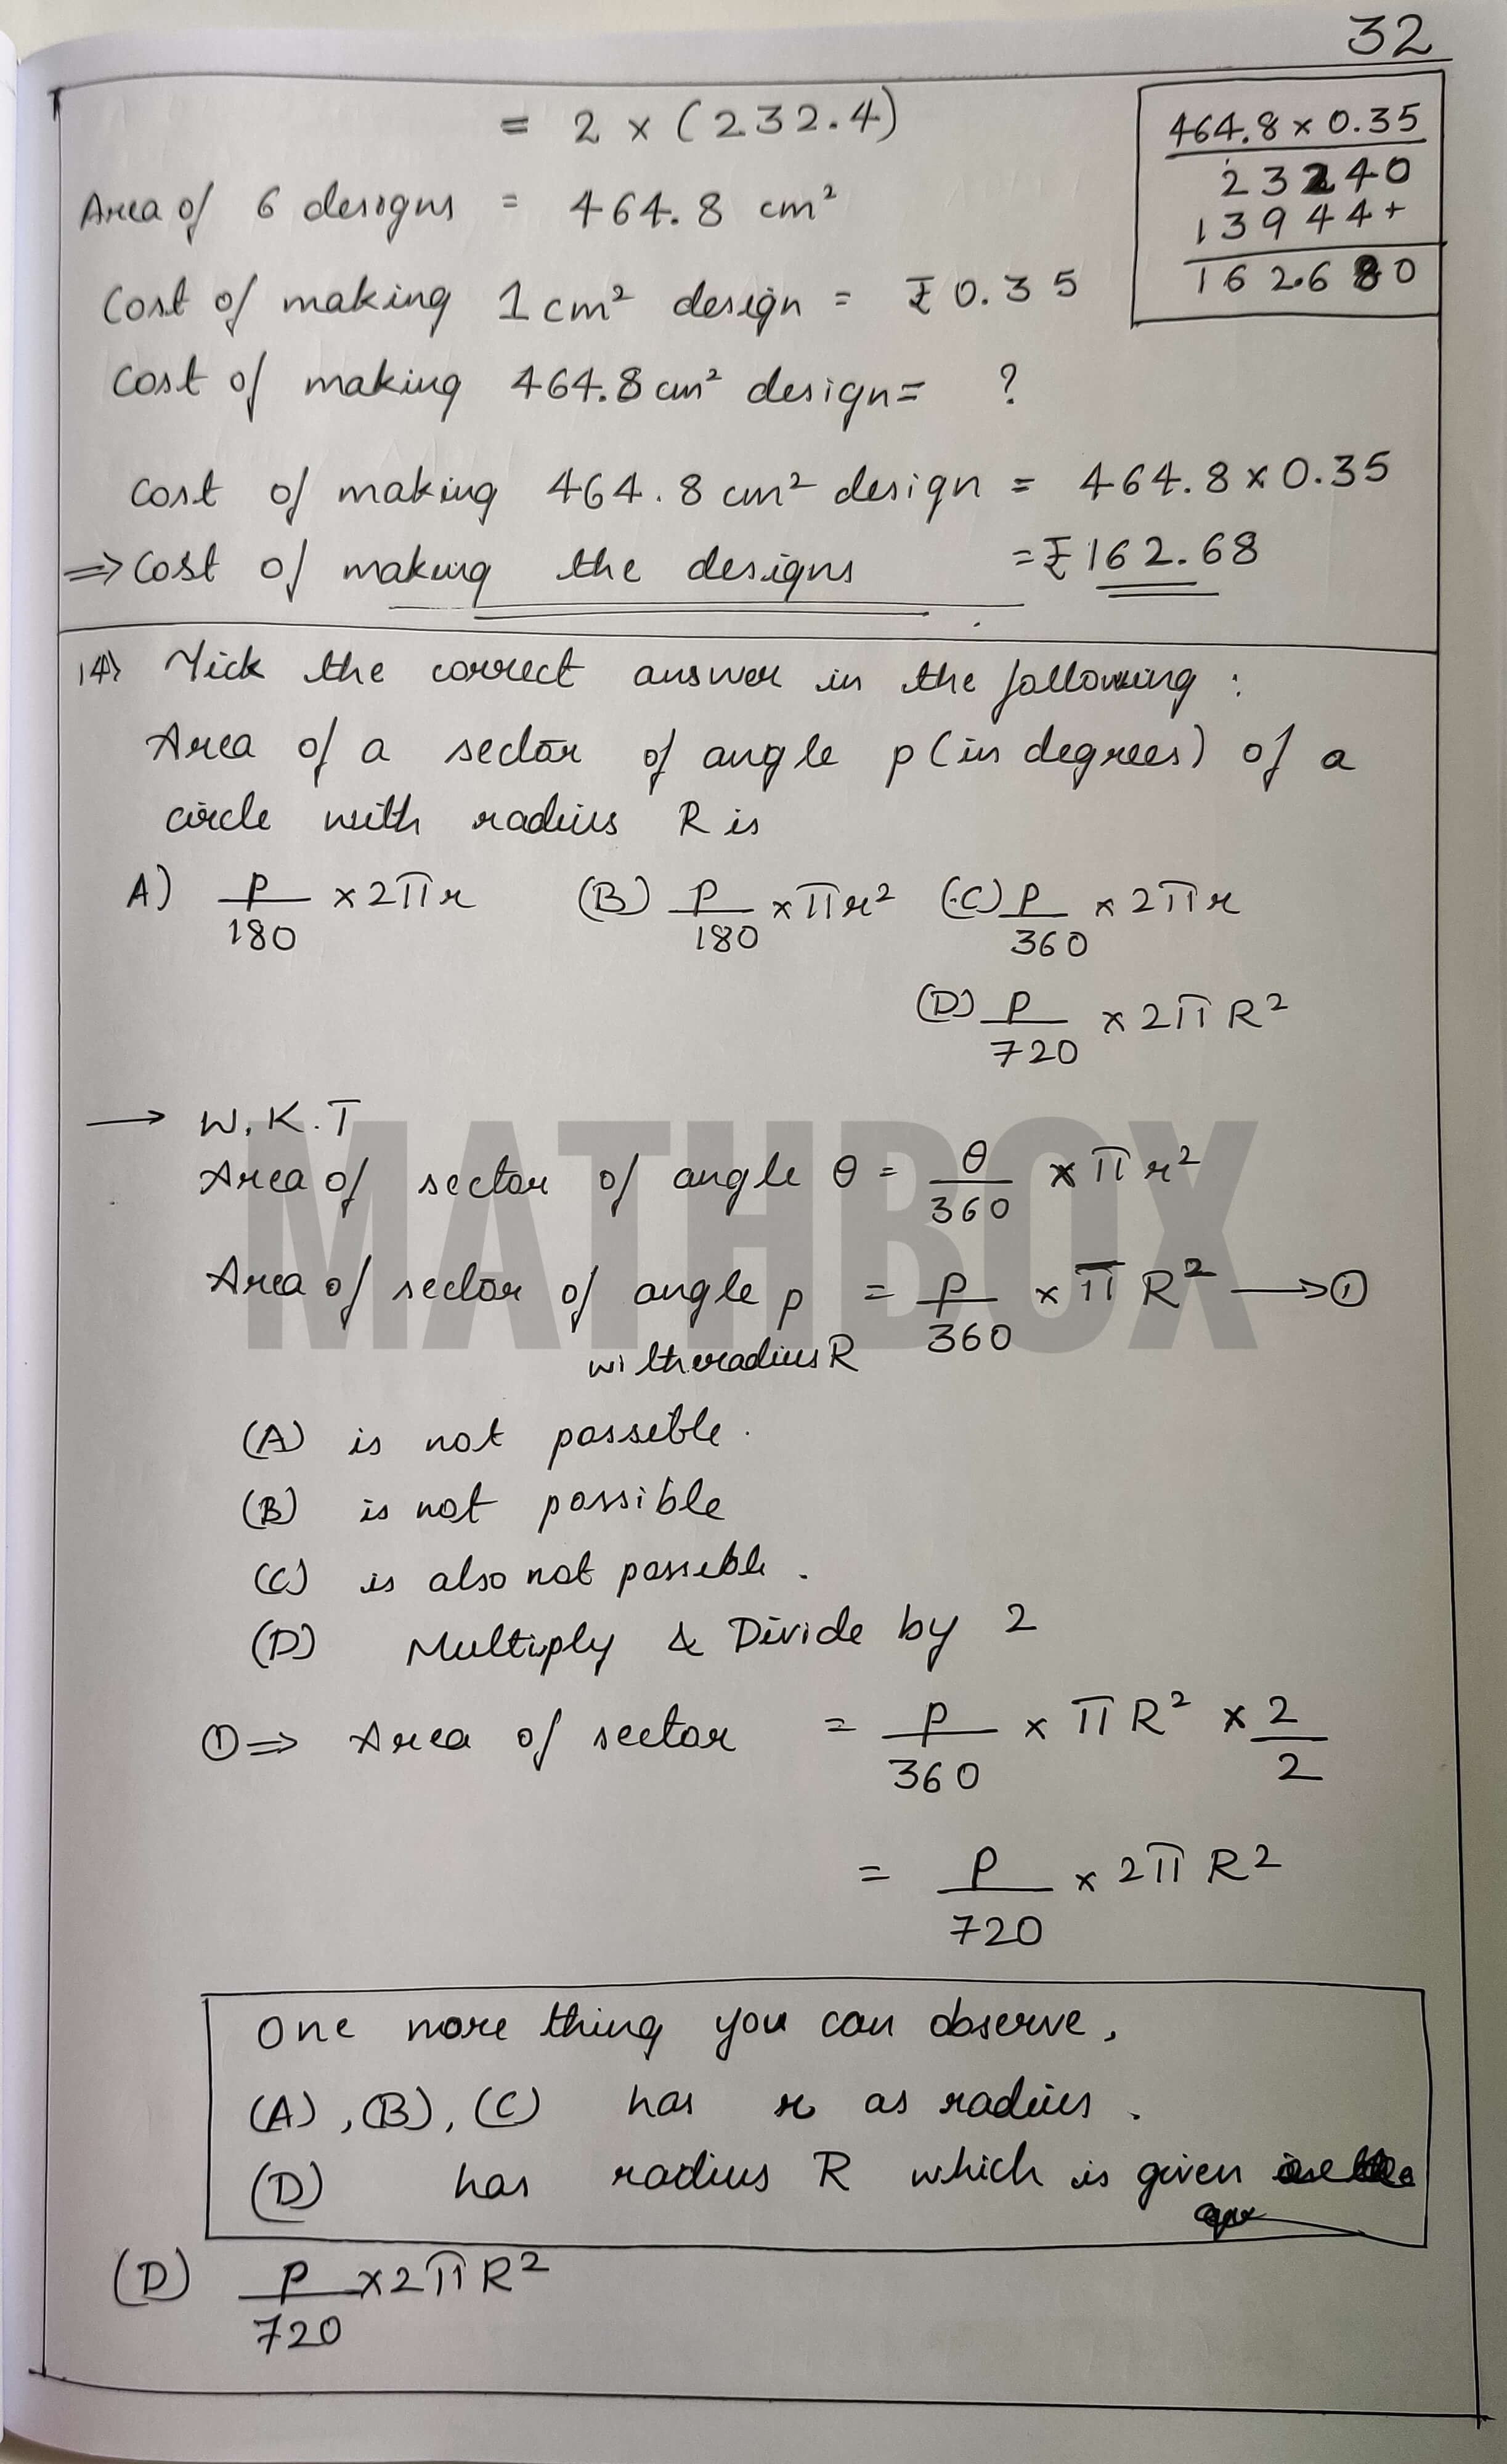 32
= 2 × (232.4)
464.8 × 0.35
23240
13944+
162.680
Area of 6 designs = 464.8 cm²
Cost of making 1cm² design = ₹0.35
Cost of making 464.8cm² design = ?
Cost of making 464.8 cm² design = 464.8 × 0.35
⇒ Cost of making the designs = ₹162.68
14) Tick the correct answer in the following :
Area of a sector of angle p (in degrees) of a
circle with radius R is
A) p/180 × 2πr (B) p/180 × πr² (C) p/360 × 2πr
(D) p/720 × 2πR²
→ W.K.T
Area of sector of angle θ = θ/360 × πr²
Area of sector of angle p = p/360 × πR² → ①
with radius R
MATHBOX
(A) is not possible.
(B) is not possible
(C) is also not possible.
(D) Multiply & Divide by 2
① ⇒ Area of sector = p/360 × πR² × 2/2
= p/720 × 2πR²
One more thing you can observe,
(A), (B), (C) has r as radius.
(D) has radius R which is given
(D) p/720 × 2πR²